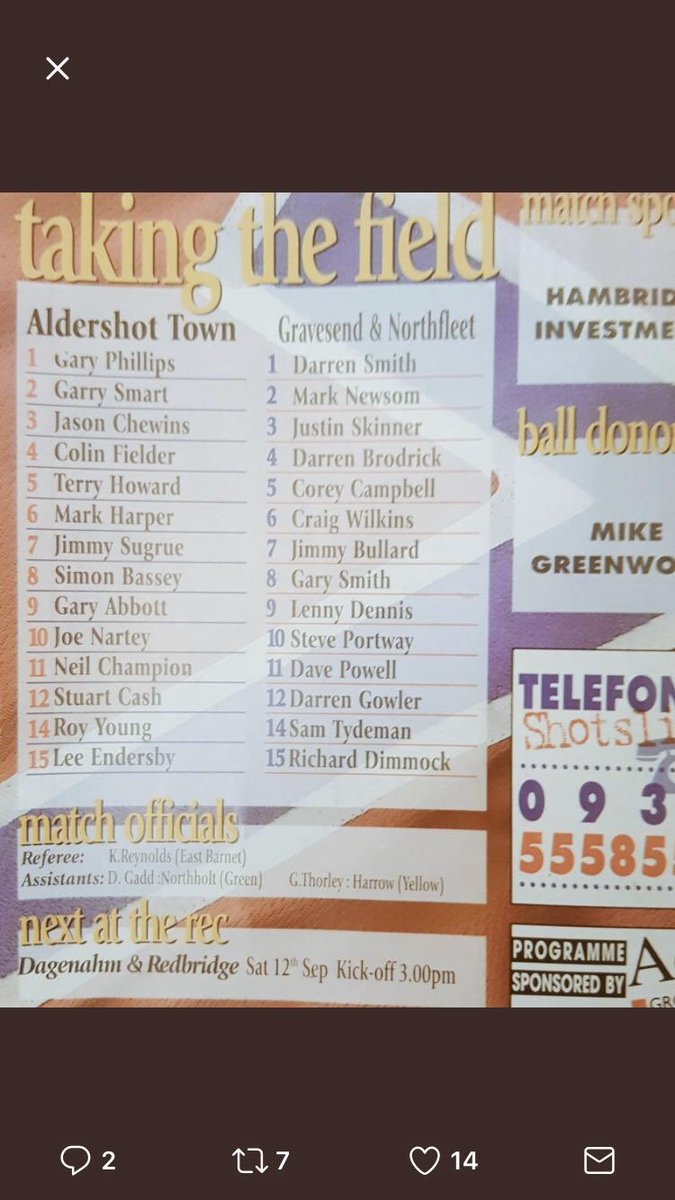 taking the field
Aldershot Town
1 Gary Phillips
2 Garry Smart
3 Jason Chewins
4 Colin Fielder
5 Terry Howard
6 Mark Harper
7 Jimmy Sugrue
8 Simon Bassey
9 Gary Abbott
10 Joe Nartey
11 Neil Champion
12 Stuart Cash
14 Roy Young
15 Lee Endersby
Gravesend & Northfleet
1 Darren Smith
2 Mark Newsom
3 Justin Skinner
4 Darren Brodrick
5 Corey Campbell
6 Craig Wilkins
7 Jimmy Bullard
8 Gary Smith
9 Lenny Dennis
10 Steve Portway
11 Dave Powell
12 Darren Gowler
14 Sam Tydeman
15 Richard Dimmock
match officials
Referee: K.Reynolds (East Barnet)
Assistants: D. Gadd :Northholt (Green) G.Thorley : Harrow (Yellow)
next at the rec
Dagenahm & Redbridge Sat 12th Sep Kick-off 3.00pm
match spo
HAMBRID
INVESTME
ball dono
MIKE
GREENWO
TELEFON
Shotsli
0 9 3
55585
PROGRAMME
SPONSORED BY
A
GR
2 7 14